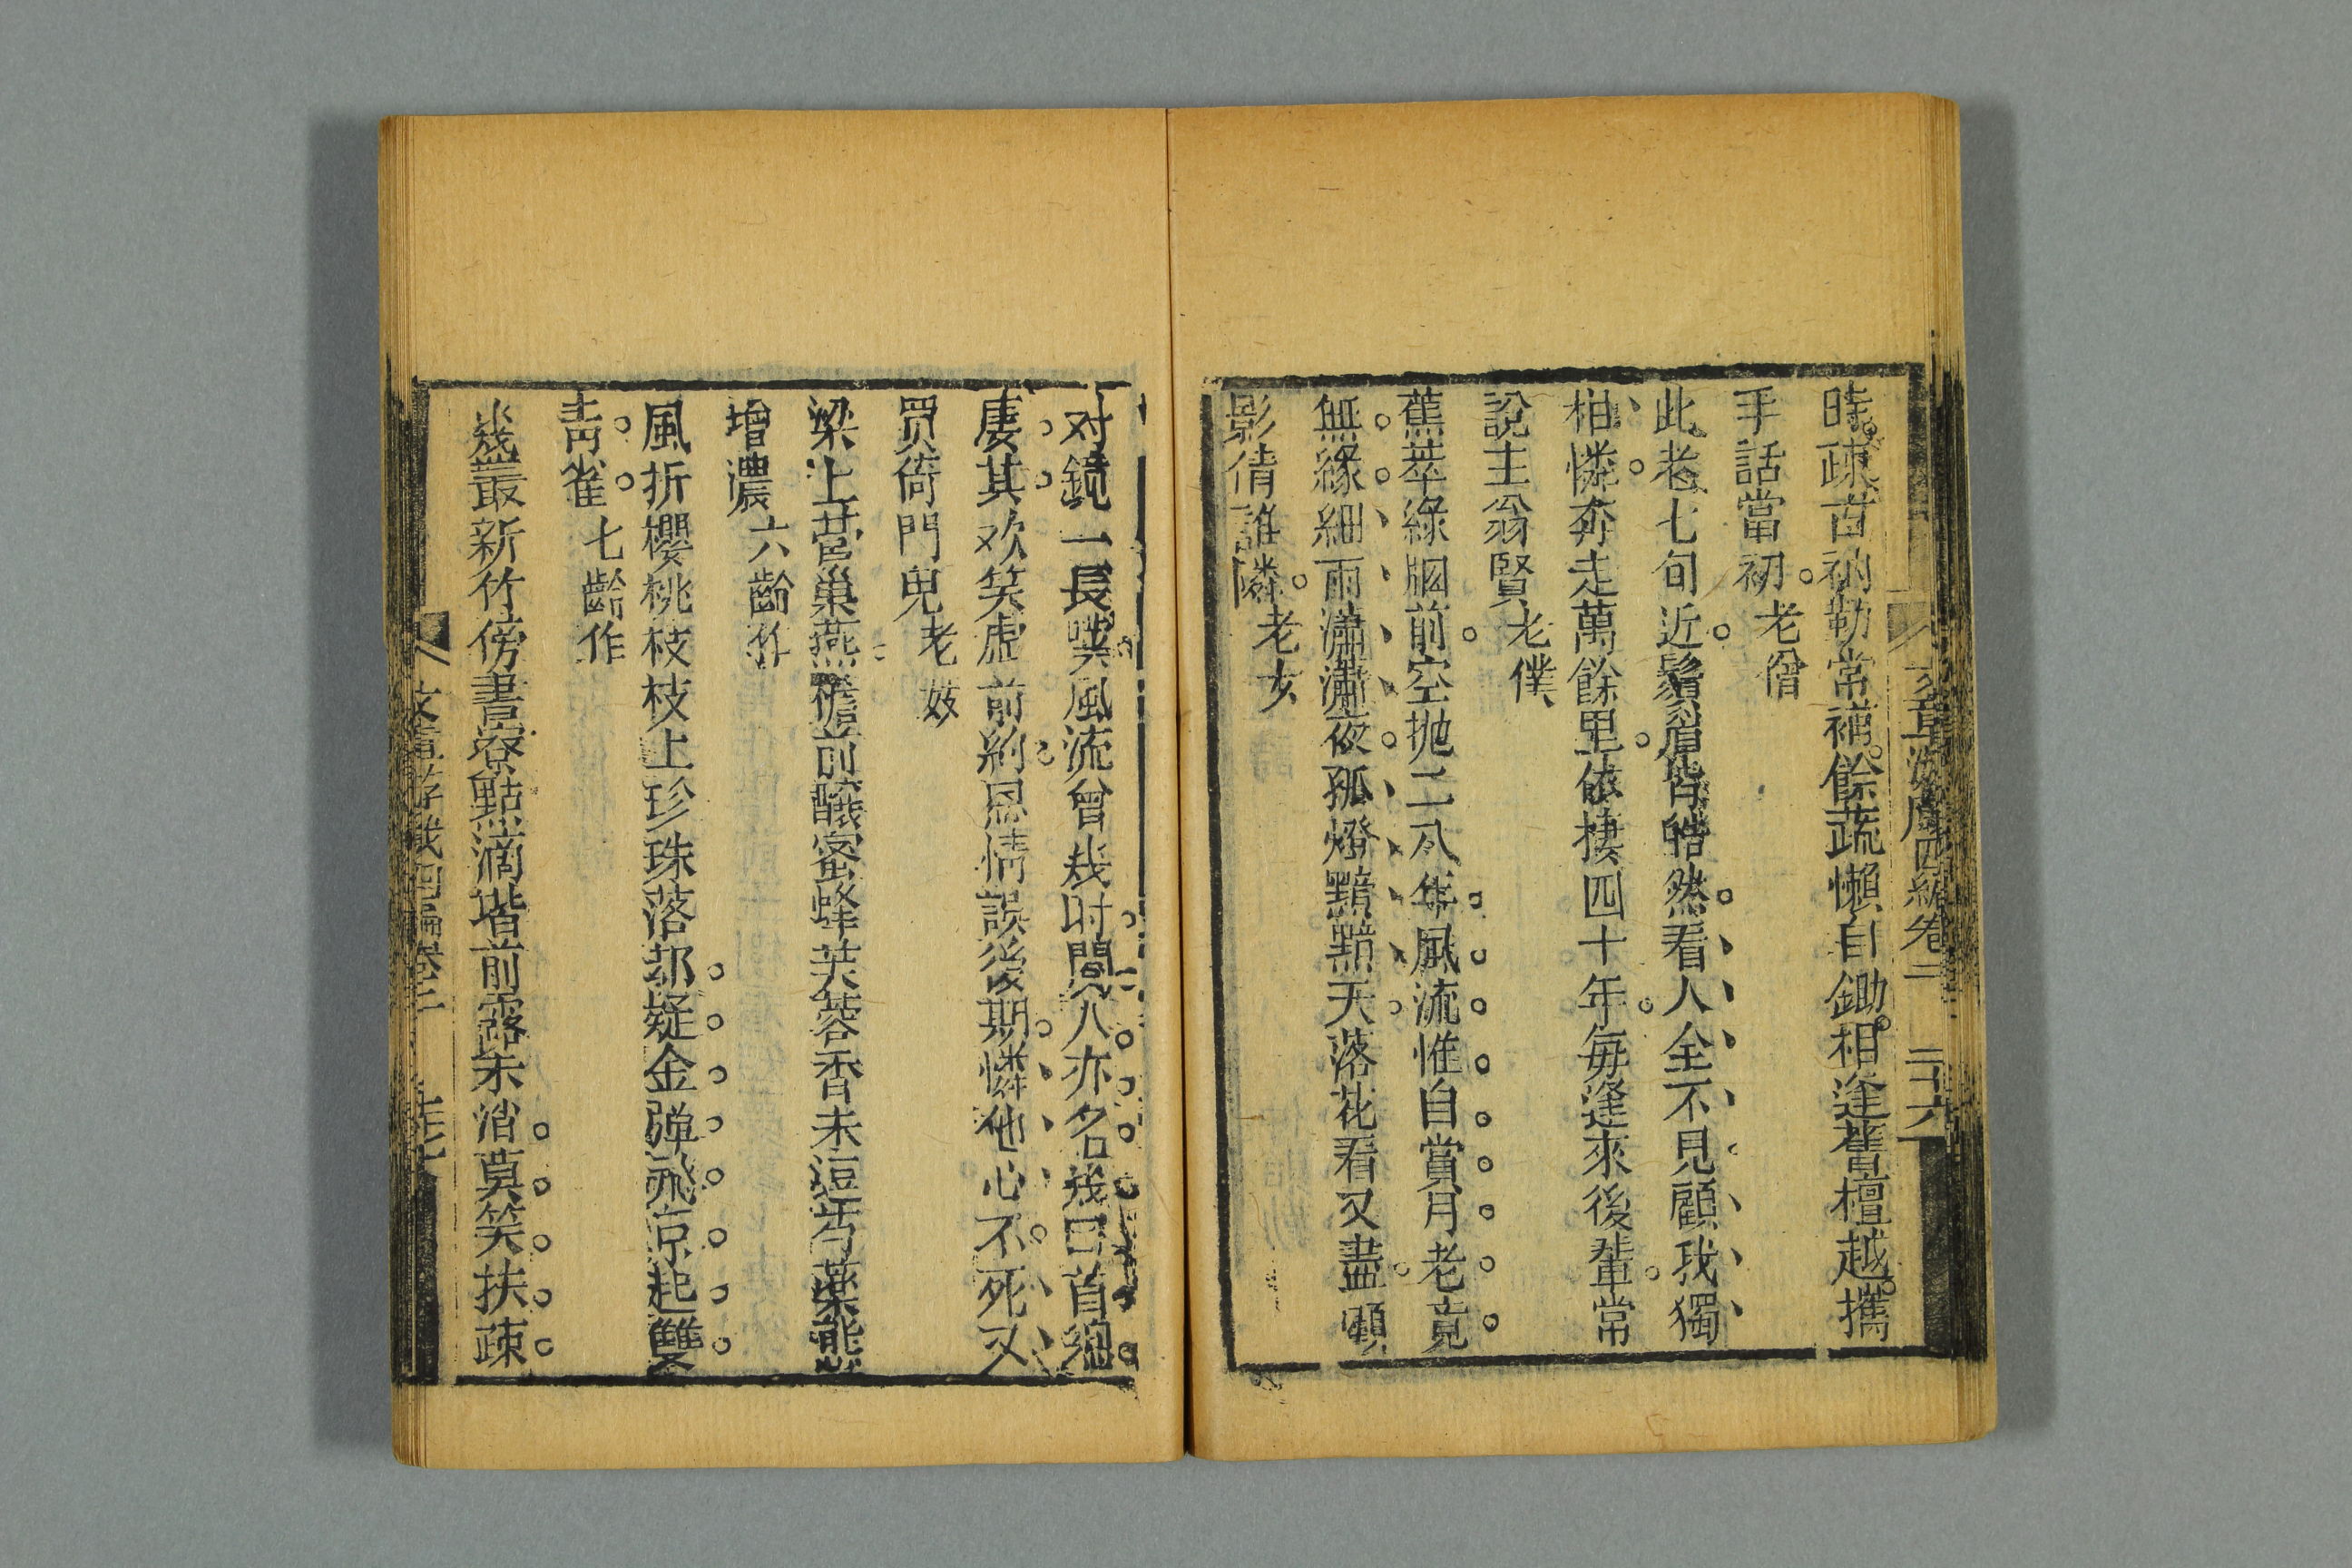 時疎古衲勒常補餘蔬懶自鋤相逢舊檀越攜
手話當初 老僧
此老七旬近鬚眉皆皓然看人全不見顧我獨
相憐奔走萬餘里依棲四十年每逢來後輩常
說主翁賢 老僕
蕉萃綠牕前空拋二八年風流惟自賞月老竟
無緣細雨瀟瀟夜孤燈黯黯天落花看又盡顧
影倩誰憐 老女
对鏡一長嘆風流曾幾时間八亦名幾回首細
屢其欢笑虛前約恩情誤後期憐他心不死又
買倚門兒 老妓
梁上营巢燕檐前釀蜜蜂芙蓉香未逗芍藥態
增濃 六齡作
風折櫻桃枝枝上珍珠落却疑金彈飛京起雙
青雀 七齡作
幾叢新竹傍書寮點滴堦前露未消莫笑扶疎
文章游戲四編卷二 二十六
文章游戲四編卷二